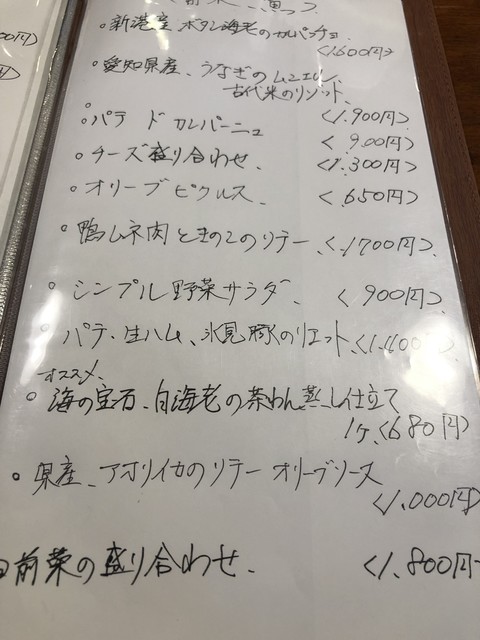 新港産 ホタン海老のカルパッチョ
<1600円>
愛知県産、うなぎのムニエル、
古代米のリゾット、
<1.900円>
パテ ド カンパーニュ
<900円>
チーズ盛り合わせ、
<1.300円>
オリーブピクルス、
<650円>
鴨ムネ肉ときのこのソテー、<1700円>
シンプル野菜サラダ、 <900円>
パテ・生ハム、氷見豚のリエット、
オススメ
海の宝石、白海老の茶わん蒸し仕立て
1ケ、<680円>
県産、アオリイカのソテー オリーブソース
<1.000円>
前菜の盛り合わせ、 <1.800円>